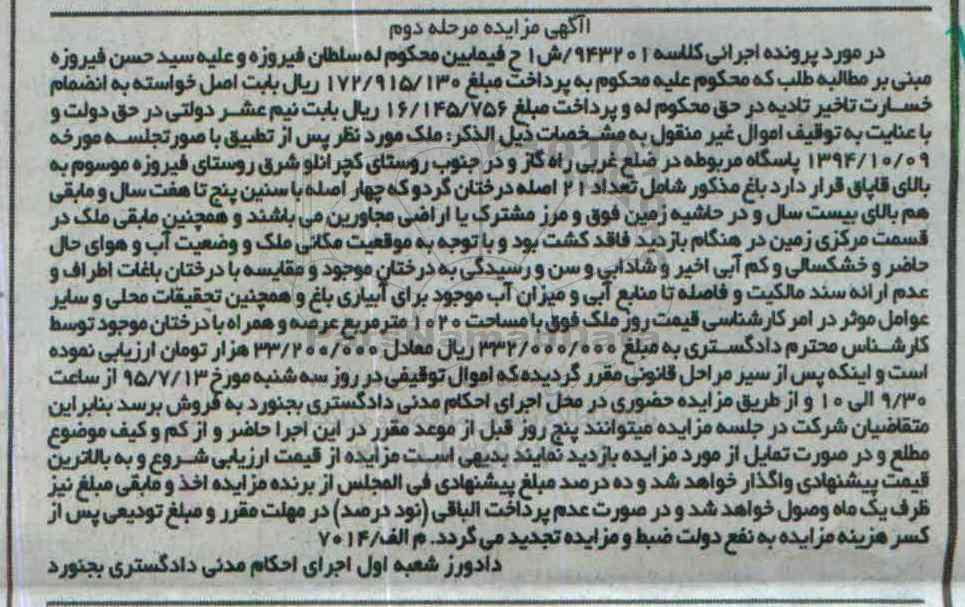 آگهی مزایده مرحله دوم
در مورد پرونده اجرائی کلاسه ۹۴۳۲۰۱/ش۱ ح فیمابین محکوم له سلطان فیروزه و علیه سید حسن فیروزه
مبنی بر مطالبه طلب که محکوم علیه محکوم به پرداخت مبلغ ۱۷۲/۹۱۵/۱۳۰ ریال بابت اصل خواسته به انضمام
خسارت تاخیر تادیه در حق محکوم له و پرداخت مبلغ ۱۶/۱۴۵/۷۵۶ ریال بابت نیم عشر دولتی در حق دولت و
با عنایت به توقیف اموال غیر منقول به مشخصات ذیل الذکر: ملک مورد نظر پس از تطبیق با صورتجلسه مورخه
۱۳۹۴/۱۰/۰۹ پاسگاه مربوطه در ضلع غربی راه گاز و در جنوب روستای گچرانلو شرق روستای فیروزه موسوم به
بالای قاپاق قرار دارد باغ مذکور شامل تعداد ۲۱ اصله درختان گردو که چهار اصله با سنین پنج تا هفت سال و مابقی
هم بالای بیست سال و در حاشیه زمین فوق و مرز مشترک یا اراضی مجاورین می باشند و همچنین مابقی ملک در
قسمت مرکزی زمین در هنگام بازدید فاقد کشت بود و با توجه به موقعیت مکانی ملک و وضعیت آب و هوای حال
حاضر و خشکسالی و کم آبی اخیر و شادابی و سن و رسیدگی به درختان موجود و مقایسه با درختان باغات اطراف و
عدم ارائه سند مالکیت و فاصله تا منابع آبی و میزان آب موجود برای آبیاری باغ و همچنین تحقیقات محلی و سایر
عوامل موثر در امر کارشناسی قیمت روز ملک فوق با مساحت ۱۰۲۰ مترمربع عرصه و همراه با درختان موجود توسط
کارشناس محترم دادگستری به مبلغ ۳۳۲/۰۰۰/۰۰۰ ریال معادل ۳۳/۲۰۰/۰۰۰ هزار تومان ارزیابی نموده
است و اینکه پس از سیر مراحل قانونی مقرر گردیده که اموال توقیفی در روز سه شنبه مورخ ۹۵/۷/۱۳ از ساعت
۹/۳۰ الی ۱۰ و از طریق مزایده حضوری در محل اجرای احکام مدنی دادگستری بجنورد به فروش برسد بنابراین
متقاضیان شرکت در جلسه مزایده میتوانند پنج روز قبل از موعد مقرر در این اجرا حاضر و از کم و کیف موضوع
مطلع و در صورت تمایل از مورد مزایده بازدید نمایند بدیهی است مزایده از قیمت ارزیابی شروع و به بالاترین
قیمت پیشنهادی واگذار خواهد شد و ده درصد مبلغ پیشنهادی فی المجلس از برنده مزایده اخذ و مابقی مبلغ نیز
ظرف یک ماه وصول خواهد شد و در صورت عدم پرداخت الباقی (نود درصد) در مهلت مقرر و مبلغ تودیعی پس از
کسر هزینه مزایده به نفع دولت ضبط و مزایده تجدید می گردد. م الف/۷۰۱۴
دادورز شعبه اول اجرای احکام مدنی دادگستری بجنورد